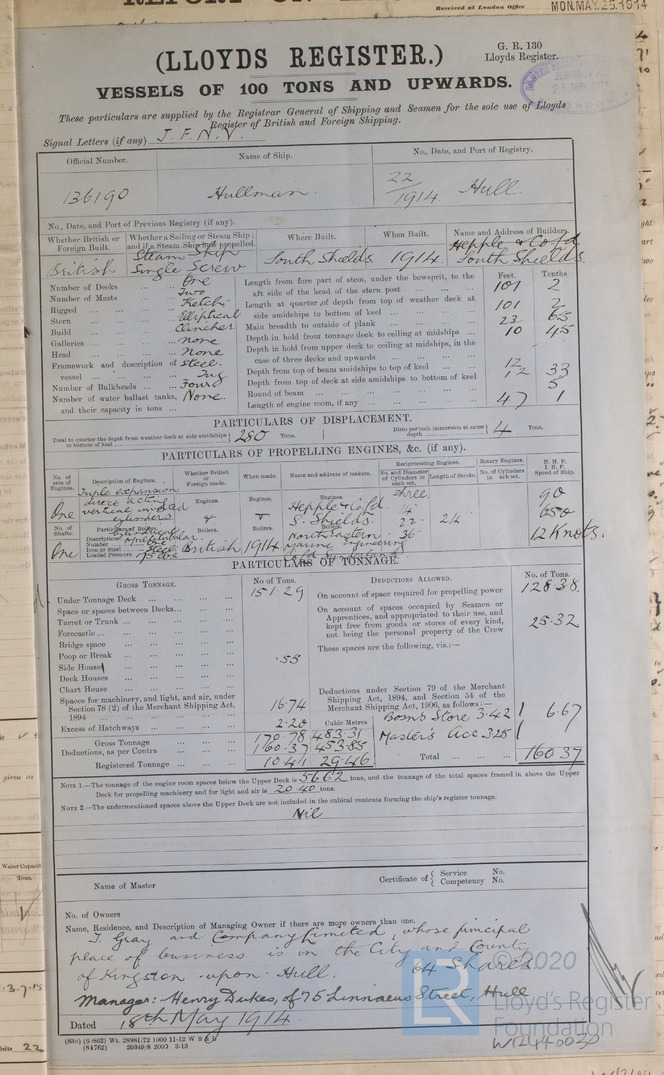 Received at London Office
MON. MAY. 25. 1914
(LLOYDS REGISTER.)
G. R. 130
Lloyds Register.
VESSELS OF 100 TONS AND UPWARDS.
These particulars are supplied by the Registrar General of Shipping and Seamen for the sole use of Lloyds
Register of British and Foreign Shipping.
Signal Letters (if any) J. F. N. V.
Official Number.
Name of Ship.
No., Date, and Port of Registry.
136190
Hullman.
22/1914 Hull.
No., Date, and Port of Previous Registry (if any).
Whether British or Foreign Built.
Whether a Sailing or Steam Ship; and if a Steam Ship how propelled.
Where Built.
When Built.
Name and Address of Builders.
British
Steam Ship
Single Screw
South Shields
1914
Hepple & Co Ld
South Shields.
Number of Decks One
Number of Masts Two
Rigged Ketch
Stern Elliptical
Build Clincher
Galleries none
Head None
Framework and description of vessel Steel. Tug
Number of Bulkheads Four
Number of water ballast tanks, and their capacity in tons None.
Feet. Tenths.
Length from fore part of stem, under the bowsprit, to the aft side of the head of the stern post 101 2
Length at quarter of depth from top of weather deck at side amidships to bottom of keel 101 2
Main breadth to outside of plank 23 65
Depth in hold from tonnage deck to ceiling at midships 10 45
Depth in hold from upper deck to ceiling at midships, in the case of three decks and upwards
Depth from top of beam amidships to top of keel 12 33
Depth from top of deck at side amidships to bottom of keel
Round of beam 5
Length of engine room, if any 47 1
PARTICULARS OF DISPLACEMENT.
Total to quarter the depth from weather deck at side amidships to bottom of keel 280 Tons.
Ditto per inch immersion at same depth 4 Tons.
PARTICULARS OF PROPELLING ENGINES, &c. (if any).
No. of sets of Engines.
Description of Engines.
Whether British or Foreign made.
When made.
Name and address of makers.
Reciprocating Engines.
No. and Diameter of Cylinders in each set.
Length of Stroke.
Rotary Engines.
No. of Cylinders in each set.
N. H. P.
I. H. P.
Speed of Ship.
One
Triple expansion
direct acting
vertical inverted
cylinders
Engines.
Hepple & Co Ld.
S. Shields.
three
14"
22"
36"
24"
90
650
12 Knots.
No. of Shafts.
One
Boilers.
British
1914
North Eastern
Marine Engineering
Co Ld
PARTICULARS OF TONNAGE.
GROSS TONNAGE.
No of Tons.
DEDUCTIONS ALLOWED.
No. of Tons.
Under Tonnage Deck 151.29
Space or spaces between Decks
Turret or Trunk
Forecastle
Bridge space
Poop or Break .55
Side Houses
Deck Houses
Chart House
Spaces for machinery, and light, and air, under Section 78 (2) of the Merchant Shipping Act, 1894 16.74
Excess of Hatchways 2.20
Cubic Metres
Gross Tonnage 170.78 483.31
Deductions, as per Contra 160.37 453.85
Registered Tonnage 10.41 29.46
On account of space required for propelling power 128.38
On account of spaces occupied by Seamen or Apprentices, and appropriated to their use, and kept free from goods or stores of every kind, not being the personal property of the Crew 25.32
These spaces are the following, viz.:—
Deductions under Section 79 of the Merchant Shipping Act, 1894, and Section 54 of the Merchant Shipping Act, 1906, as follows:—
Bosns Store 3.42
Master's Acc 3.25
6.67
Total 160.37
NOTE 1.—The tonnage of the engine room spaces below the Upper Deck is 56.62 tons, and the tonnage of the total spaces framed in above the Upper
Deck for propelling machinery and for light and air is 20.40 tons.
NOTE 2.—The undermentioned spaces above the Upper Deck are not included in the cubical contents forming the ship's register tonnage.
Nil
Name of Master
Certificate of { Service No.
Competency No.
No. of Owners
Name, Residence, and Description of Managing Owner if there are more owners than one.
T. Gray and Company Limited, whose principal
place of business is in the City and County
of Kingston upon Hull. 64 Shares.
Manager: Henry Dukes, of 75 Linnaeus Street, Hull
Dated 18th May 1914.
© 2020
Lloyd's Register
Foundation
W1244-0030